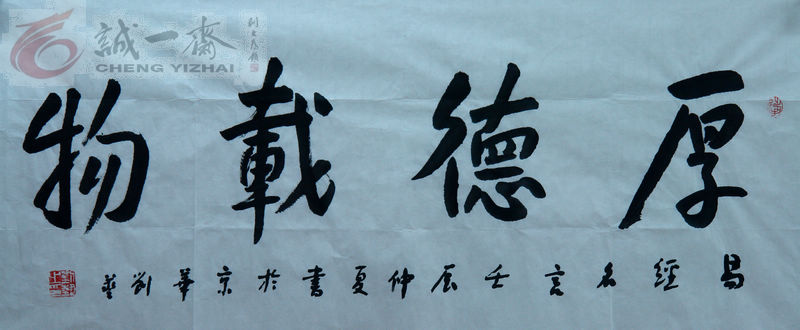 誠一齋
CHENG YIZHAI
厚德載物
易經名言壬辰仲夏書於京華劉